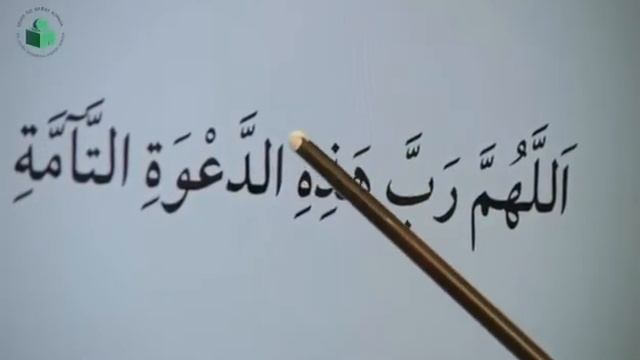 اَللَّهُمَّ رَبَّ هَذِهِ الدَّعْوَةِ التَّآمَّةِ